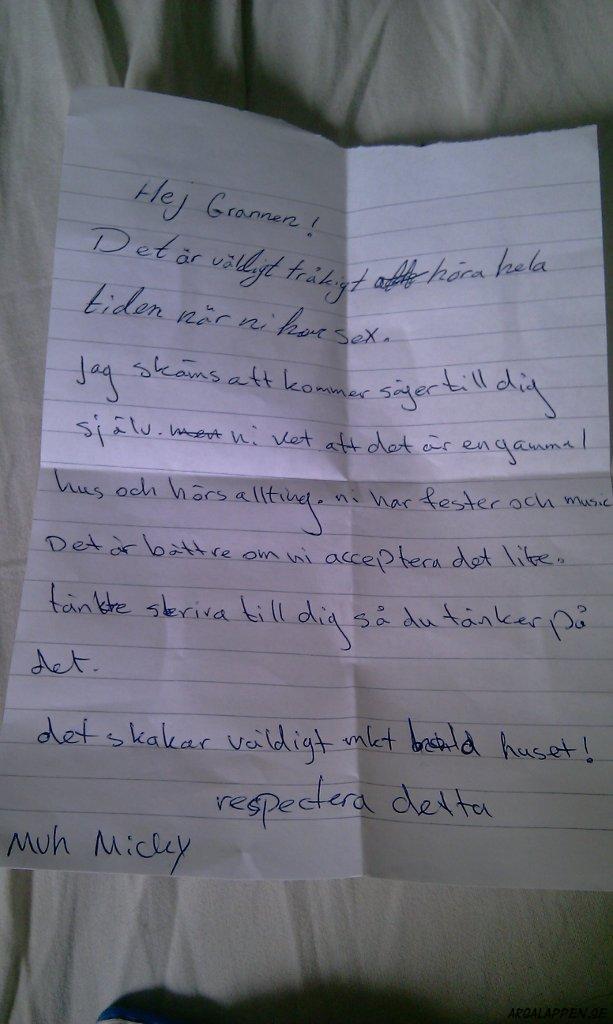 Hej Grannen!
Det är välligt tråkigt höra hela
tiden när ni har sex.
Jag skäms att kommer säger till dig
själv. ni vet att det är en gammal
hus och hörs allting. ni har fester och music
Det är bättre om ni acceptera det lite.
tänkte skriva till dig så du tänker på
det.
det skakar väldigt mkt huset!
respectera detta
Mvh Micky
ARGALAPPEN.SE